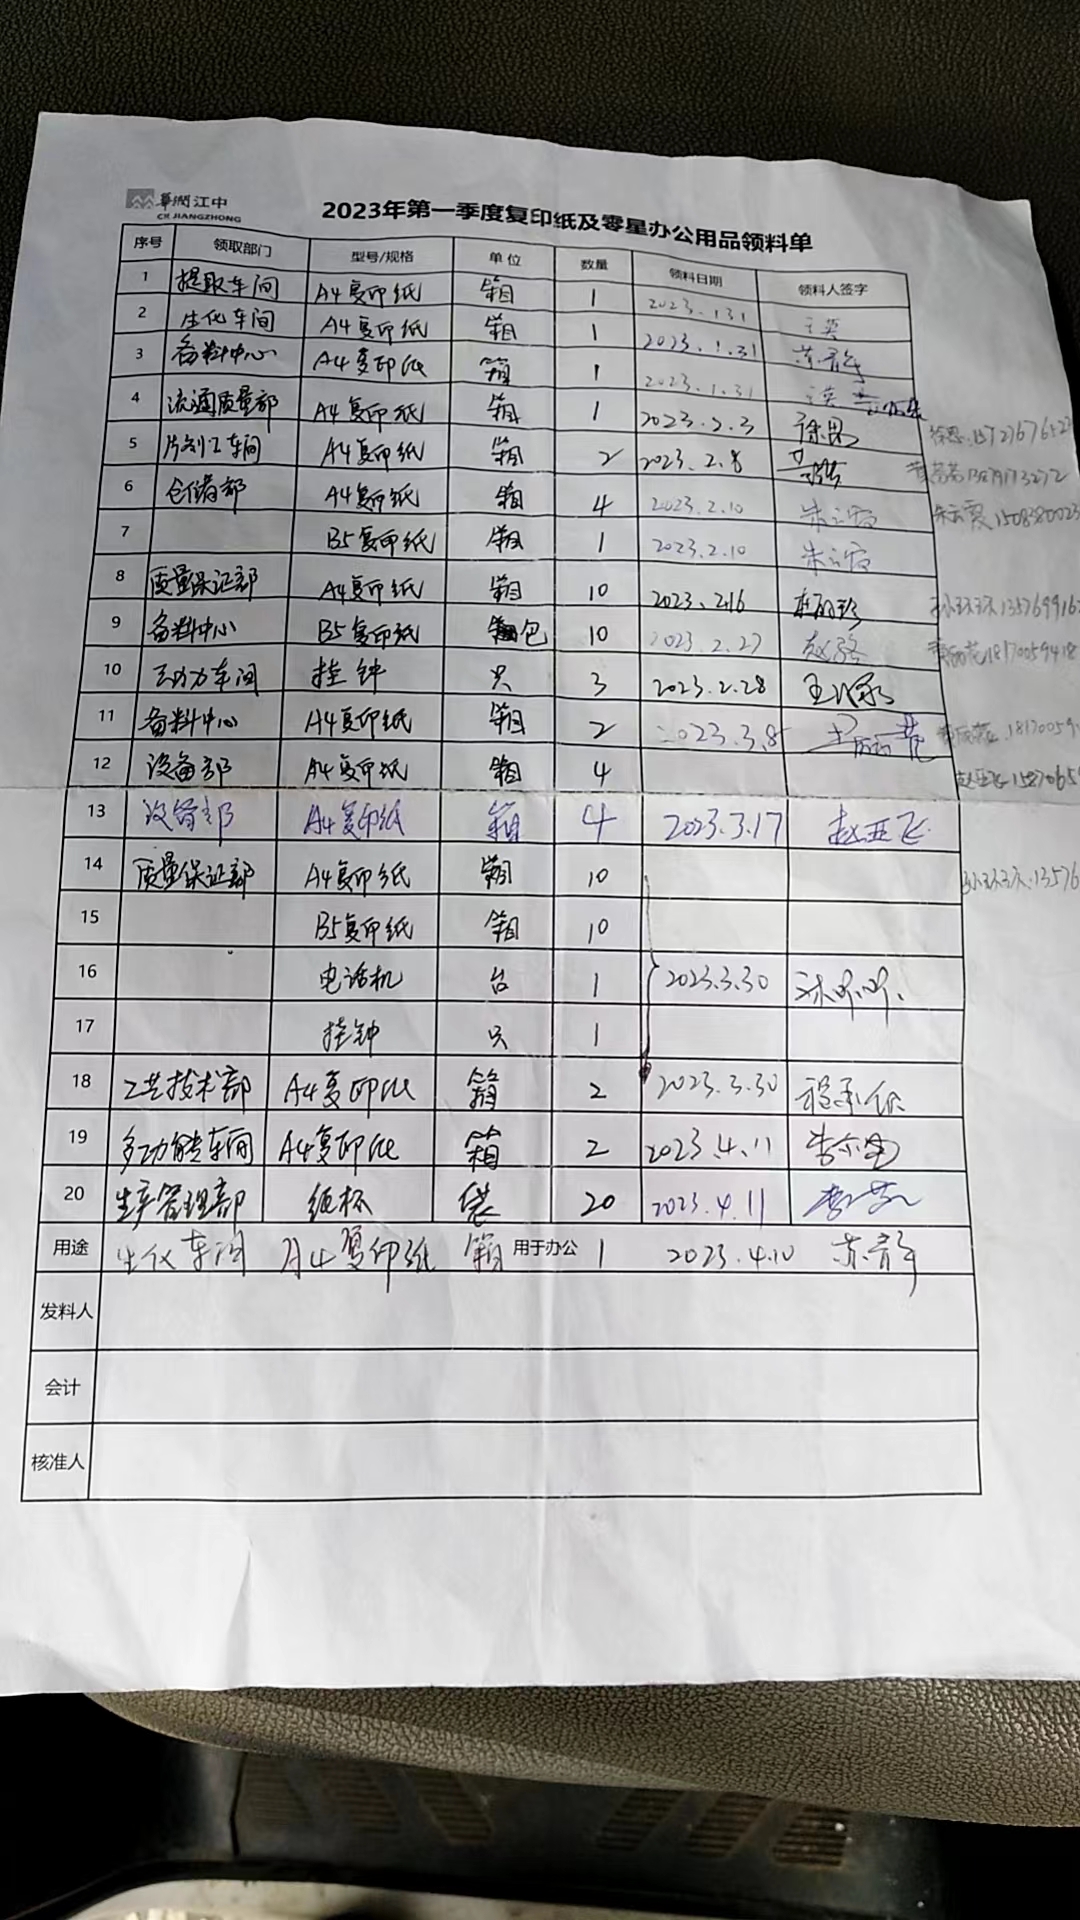 華潤江中
CR JIANGZHONG
2023年第一季度复印纸及零星办公用品领料单
序号 领取部门 型号/规格 单位 数量 领料日期 领料人签字
1 提取车间 A4复印纸 箱 1 2023.1.31
2 生化车间 A4复印纸 箱 1 2023.1.31 苏青年
3 备料中心 A4复印纸 箱 1 2023.1.31
4 流通质量部 A4复印纸 箱 1 2023.2.3 徐思
5 片剂工车间 A4复印纸 箱 2 2023.2.8
6 仓储部 A4复印纸 箱 4 2023.2.10 朱云霞
7 B5复印纸 箱 1 2023.2.10 朱云霞
8 质量保证部 A4复印纸 箱 10 2023.2.16
9 备料中心 B5复印纸 包 10 2023.2.27
10 动力车间 挂钟 只 3 2023.2.28
11 备料中心 A4复印纸 箱 2 2023.3.8
12 设备部 A4复印纸 箱 4
13 设备部 A4复印纸 箱 4 2023.3.17 赵亚飞
14 质量保证部 A4复印纸 箱 10
15 B5复印纸 箱 10
16 电话机 台 1 2023.3.30
17 挂钟 只 1
18 工艺技术部 A4复印纸 箱 2 2023.3.30
19 多功能车间 A4复印纸 箱 2 2023.4.11
20 生产管理部 纸杯 袋 20 2023.4.11
用途 生化车间 A4复印纸 箱 用于办公 1 2023.4.10 苏青年
发料人
会计
核准人